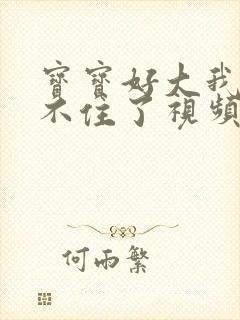 寶寶好大我
不住了視頻
何雨繁